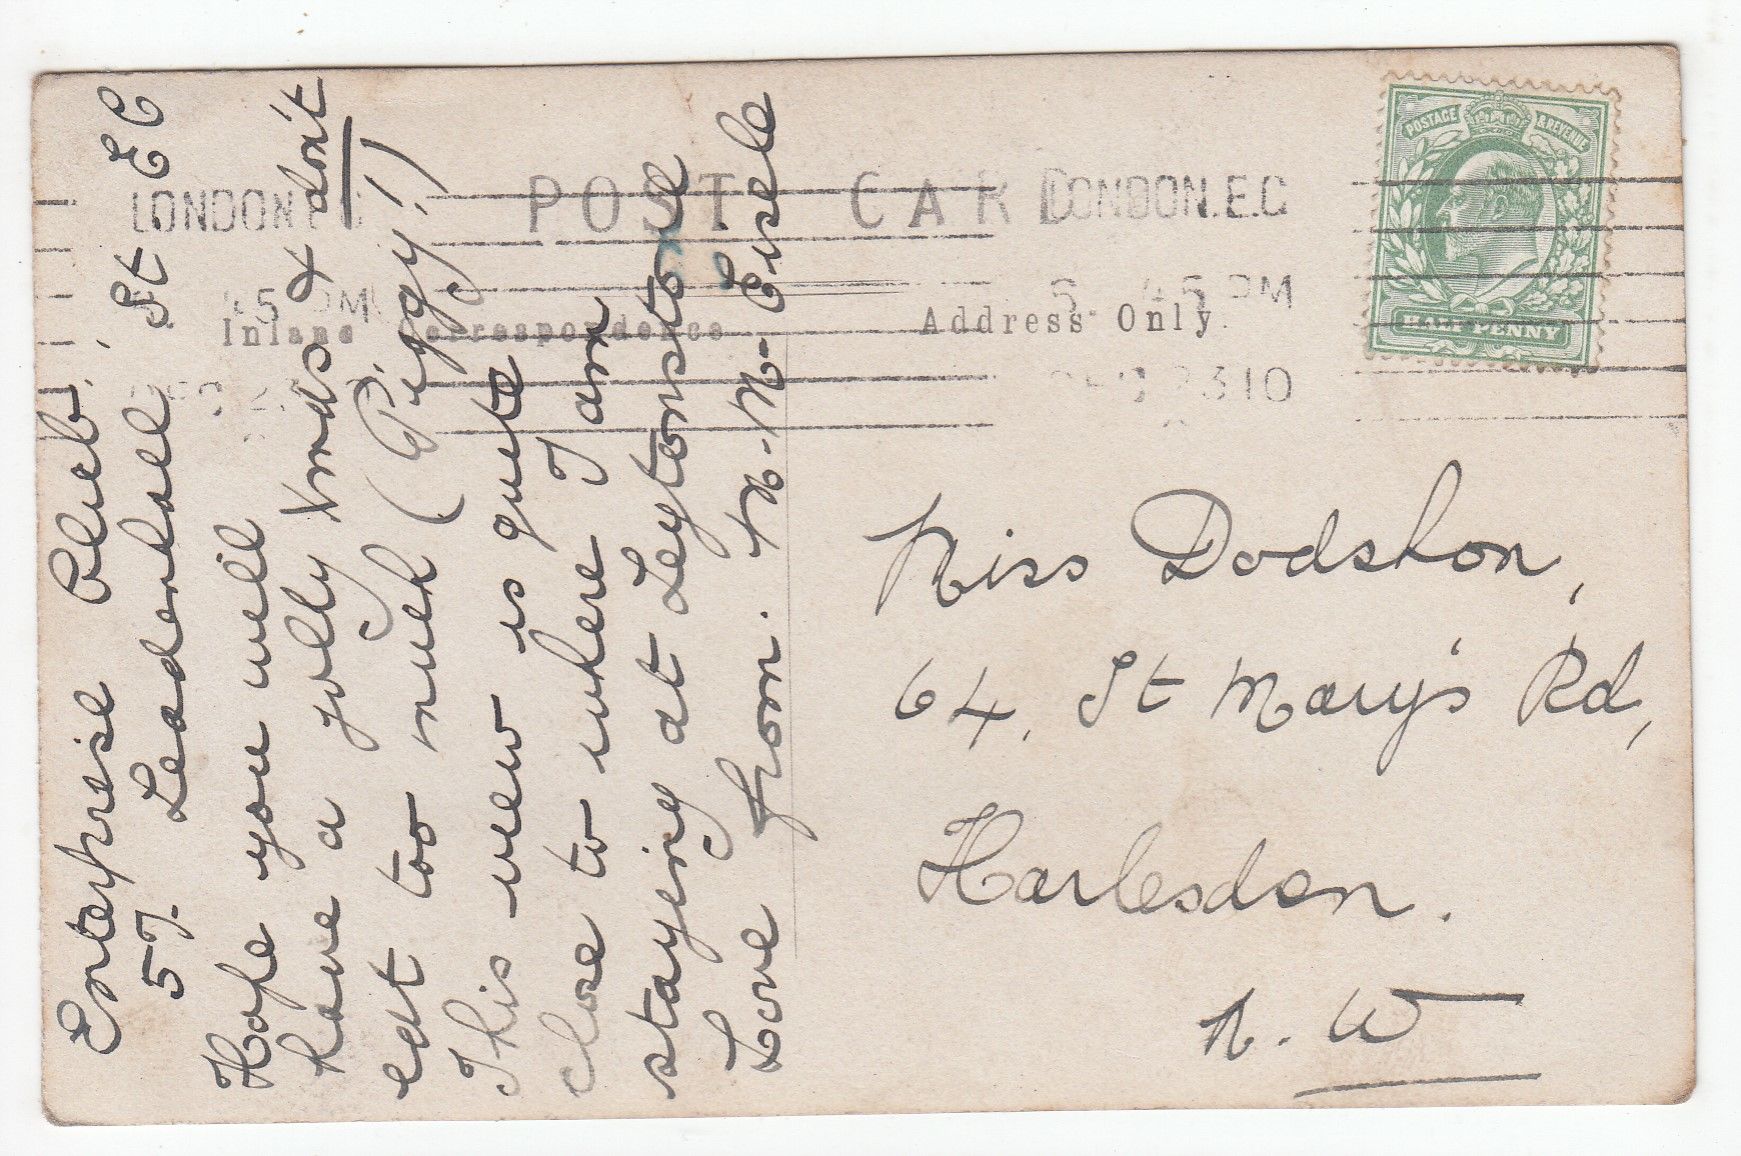 POST CARD
Inland Correspondence
Address Only.
LONDON.E.C
LONDON.E.C
45 PM
5 45 PM
DEC 23 10
POSTAGE & REVENUE
HALF PENNY
Enterprise Club,
57. Leadenhall St. EC
Hope you will
have a jolly Xmas & don't
eat too much (Piggy!)
This view is quite
close to where I am
staying at Leytonstone
Love from. M. M. Eisele
Miss Dodshon,
64, St Mary's Rd,
Harlesden.
N. W